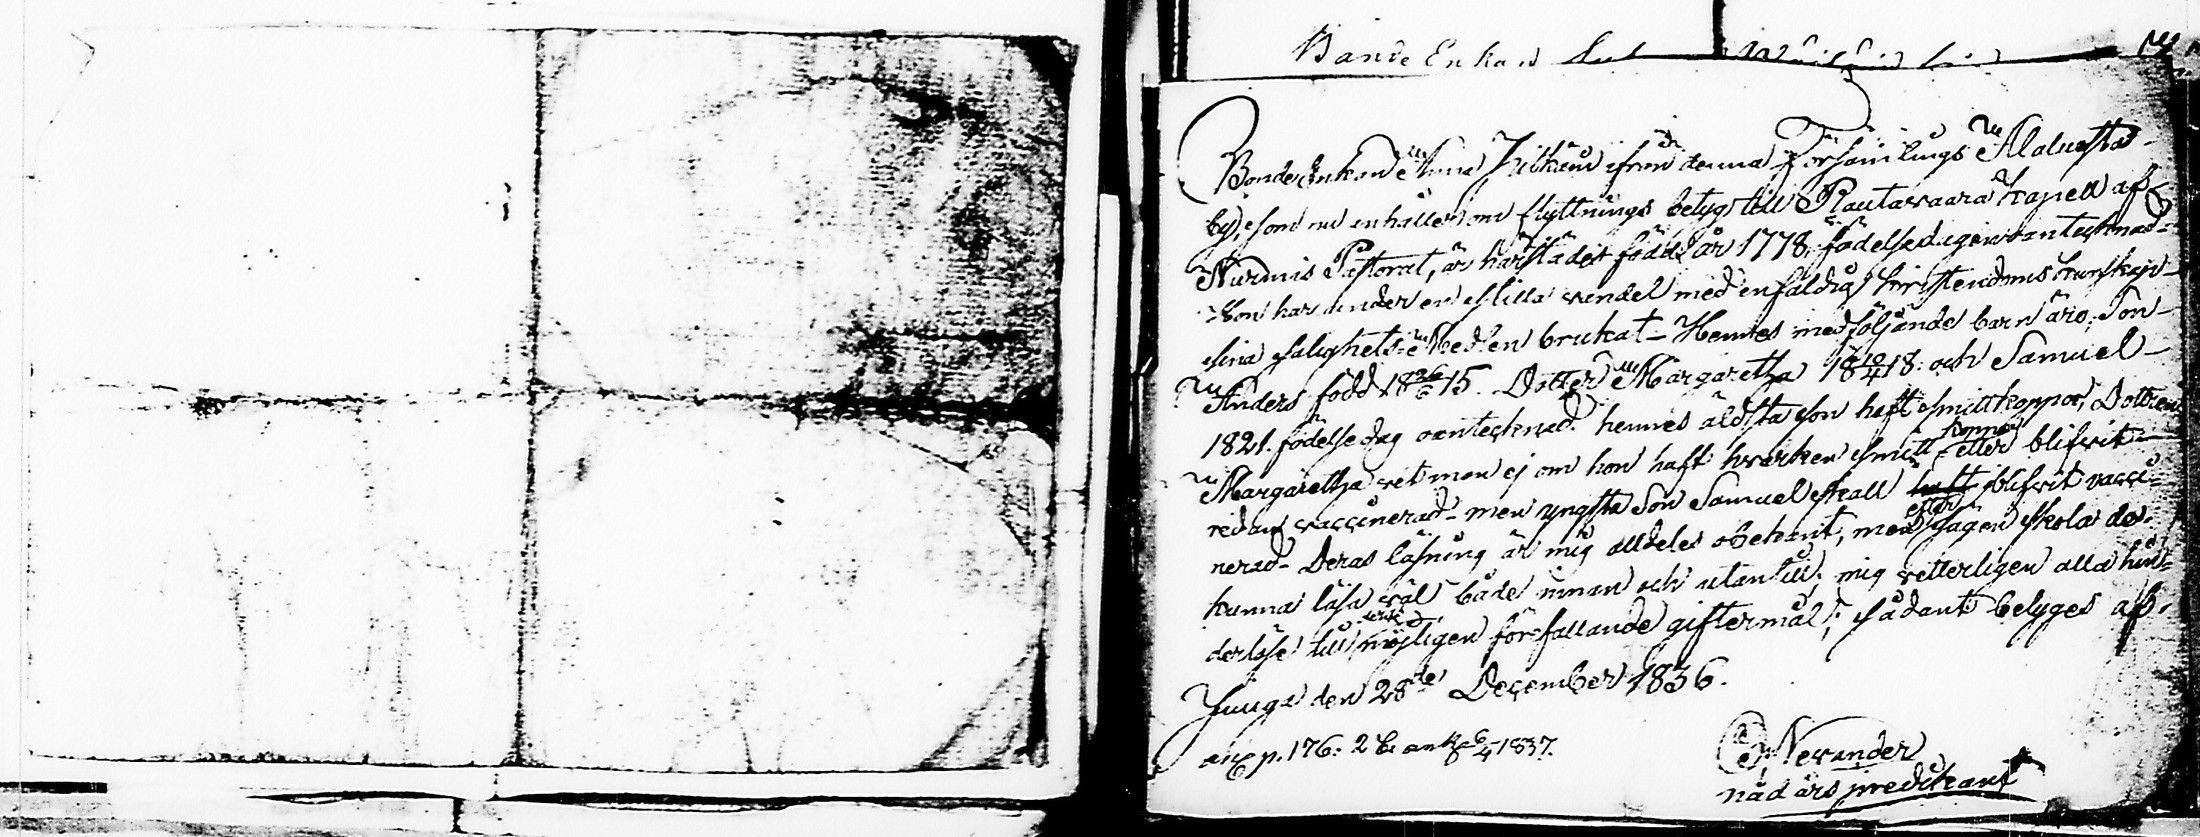 Bonde Enkan
Bonde Enkan Anna ifrån denna Församlings Maluksta
by, som nu anhåller om flyttnings betyg till Rautavaara Kapell af
Nurmis Pastorat, är härstädes född år 1778, födelsedagen oantecknad.
Hon har under en stilla vandel med enfaldig Kristendoms kunskap
sina salighets medlen brukat. Hennes medföljande barn äro, Son
Anders född 18 26/6 15. Dotter Margaretha 18 10/4 18. och Samuel
1821. födelsedag oantecknad. hennes äldsta son haft smittkoppor, Dottren
Margaretha vet man ej om hon haft hvarken smitt koppor eller blifvit
redan vaccinerad - men yngsta Son Samuel skall blifvit vacci-
nerad - Deras läsning är mig alldeles obekant, men efter sägen skola de
kunna läsa väl både innan och utantill; mig vetterligen alla hin-
derlöse till möjligen förefallande giftermål; sådant betyges af.
Juuga den 28de December 1836.
p. 176. 1837.
Nevander
nådårs predikant